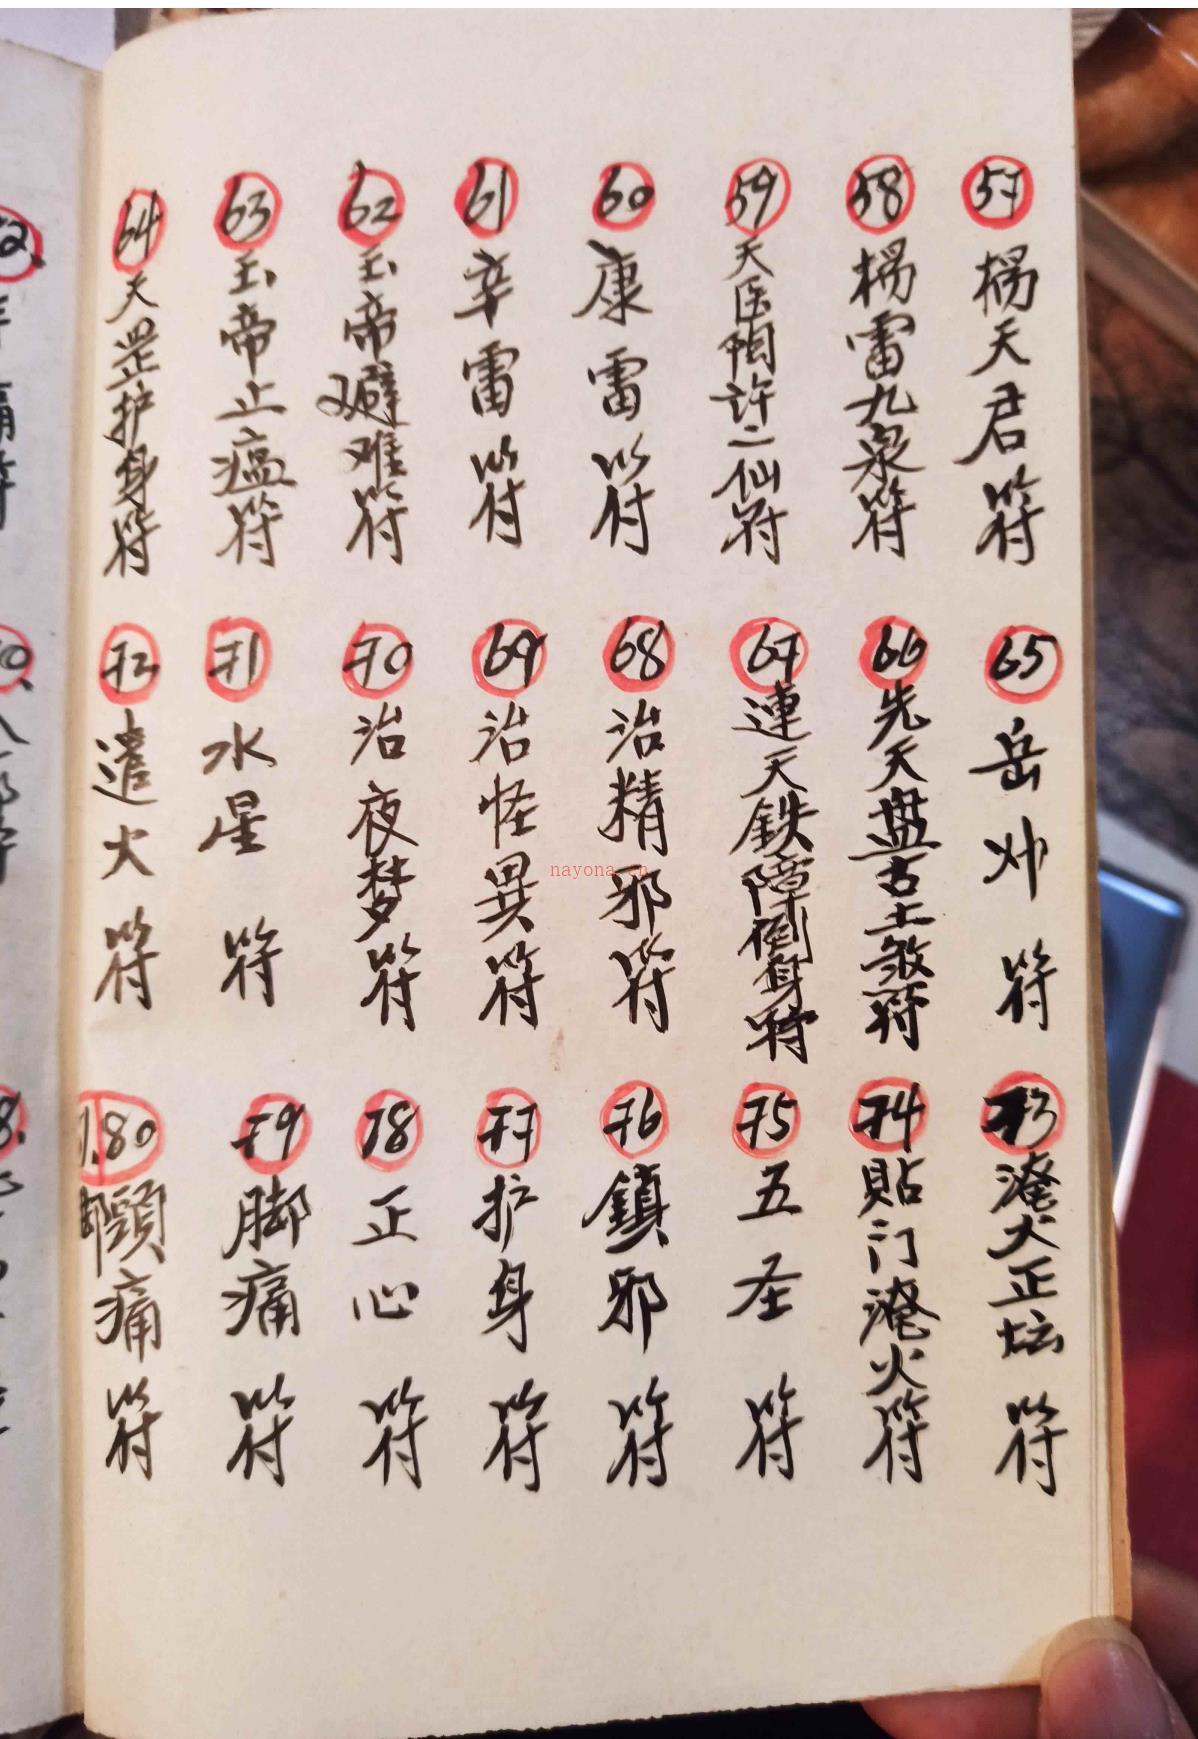 57 楊天君符
58 楊雷九泉符
59 天医 許二仙符
60 康雷符
61 辛雷符
62 玉帝避难符
63 玉帝止瘟符
64 天罡护身符
65 岳帅符
66 先天盘古土煞符
67 連天鉄障倒身符
68 治精邪符
69 治怪異符
70 治夜梦符
71 水星符
72 遣火符
73 淹火正坛符
74 貼门淹火符
75 五圣符
76 鎮邪符
77 护身符
78 正心符
79 脚痛符
80 頭痛符
nayona.cn